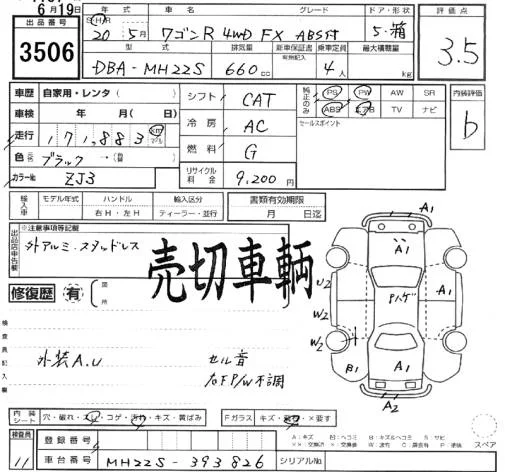 6月19日
出品番号
3506
年式 車名 グレード ドア・形状
20年 5月 ワゴンR 4WD FX ABS付 5・箱
型式 排気量 新車保証書 乗車定員 最大積載量
有無記入
DBA-MH22S 660cc 4人 kg
評価点
3.5
車歴 自家用・レンタ( )
車検 年 月( 日)
走行 171,883 km マイル
色 ブラック→
カラーNo. ZJ3
シフト CAT
冷房 AC
燃料 G
リサイクル料金 9,200円
純正のみ PS PW AW SR
ABS エアB TV ナビ
セールスポイント
内装評価
b
輸入車 モデル年式 ハンドル 輸入区分
右H・左H ディーラー・並行
書類有効期限
月 日迄
出品店申告欄
※注意事項等記載
外アルミ・スタッドレス
売切車輌
修復歴 有
箇所
検査員記入欄
外装A.U
セル音
右FP/W不調
A1
A1
U2
W2
W2
Pハゲ
B1
A1
A2
内装シート 穴・破れ・スレ・コゲ・汚れ・キズ・黄ばみ
Fガラス キズ・
・×要す
A:キズ U:ヘコミ B:キズ&ヘコミ S:サビ
スペア
検査員
11
登録番号
車台番号 MH22S-393826
シリアルNo.